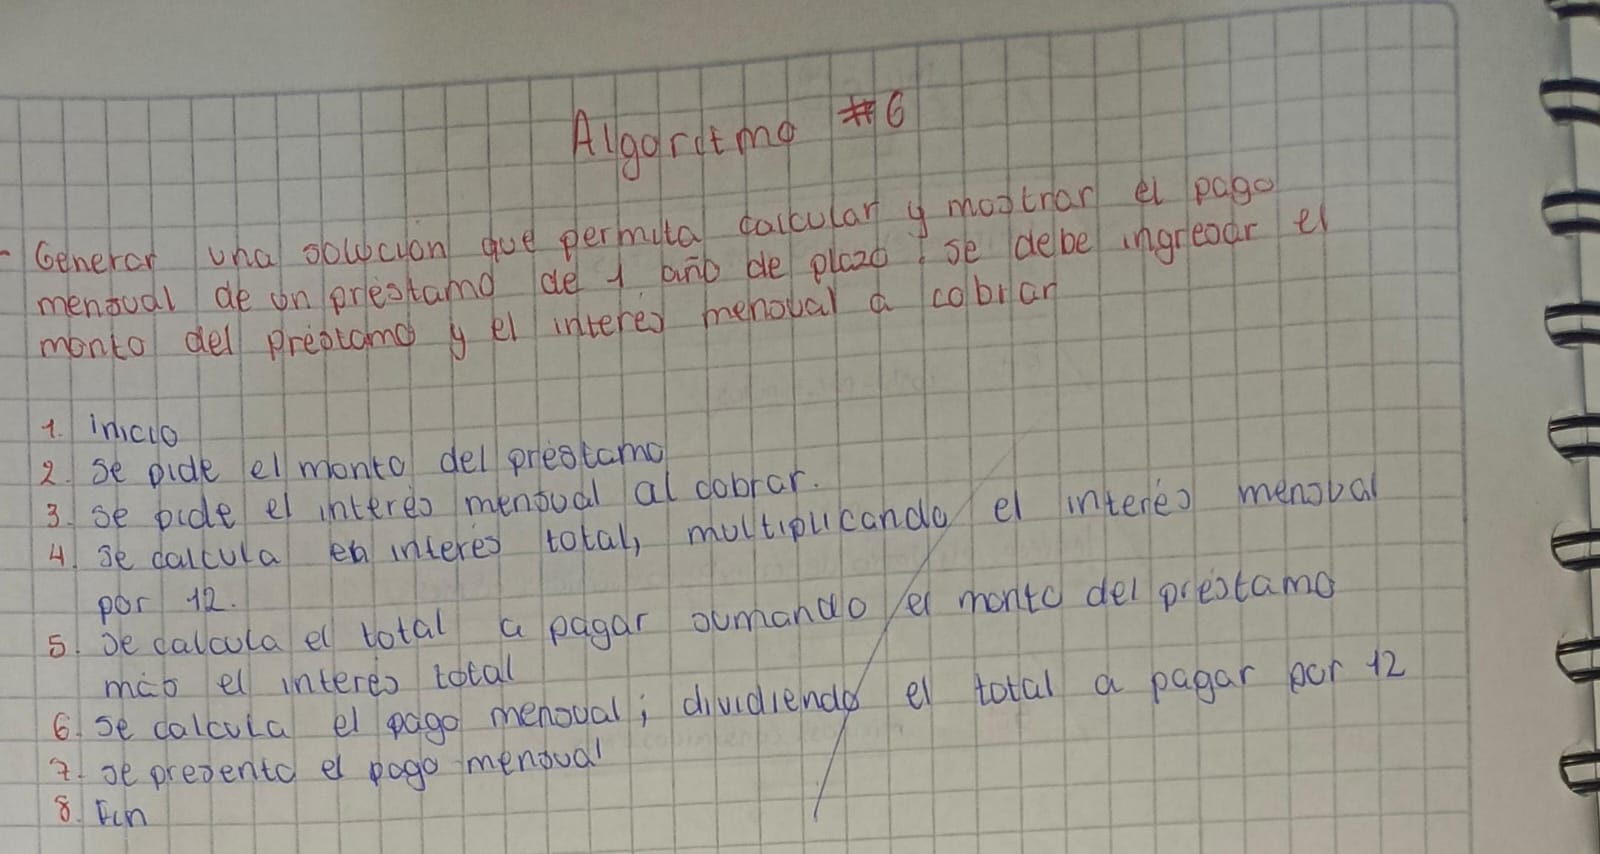 Algoritmo #6
- Generar una solución que permita calcular y mostrar el pago
mensual de un préstamo de 1 año de plazo, se debe ingresar el
monto del préstamo y el interés mensual a cobrar
1. inicio
2. se pide el monto del préstamo
3. se pide el interés mensual al cobrar.
4. se calcula en interés total, multiplicando el interés mensual
por 12.
5. se calcula el total a pagar sumando el monto del préstamo
más el interés total
6. se calcula el pago mensual; dividiendo el total a pagar por 12
7. se presenta el pago mensual
8. Fin